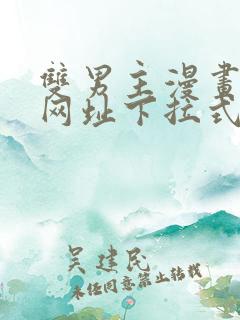 雙男主漫畫
网址下拉式
吴建民
未经同意禁止转载